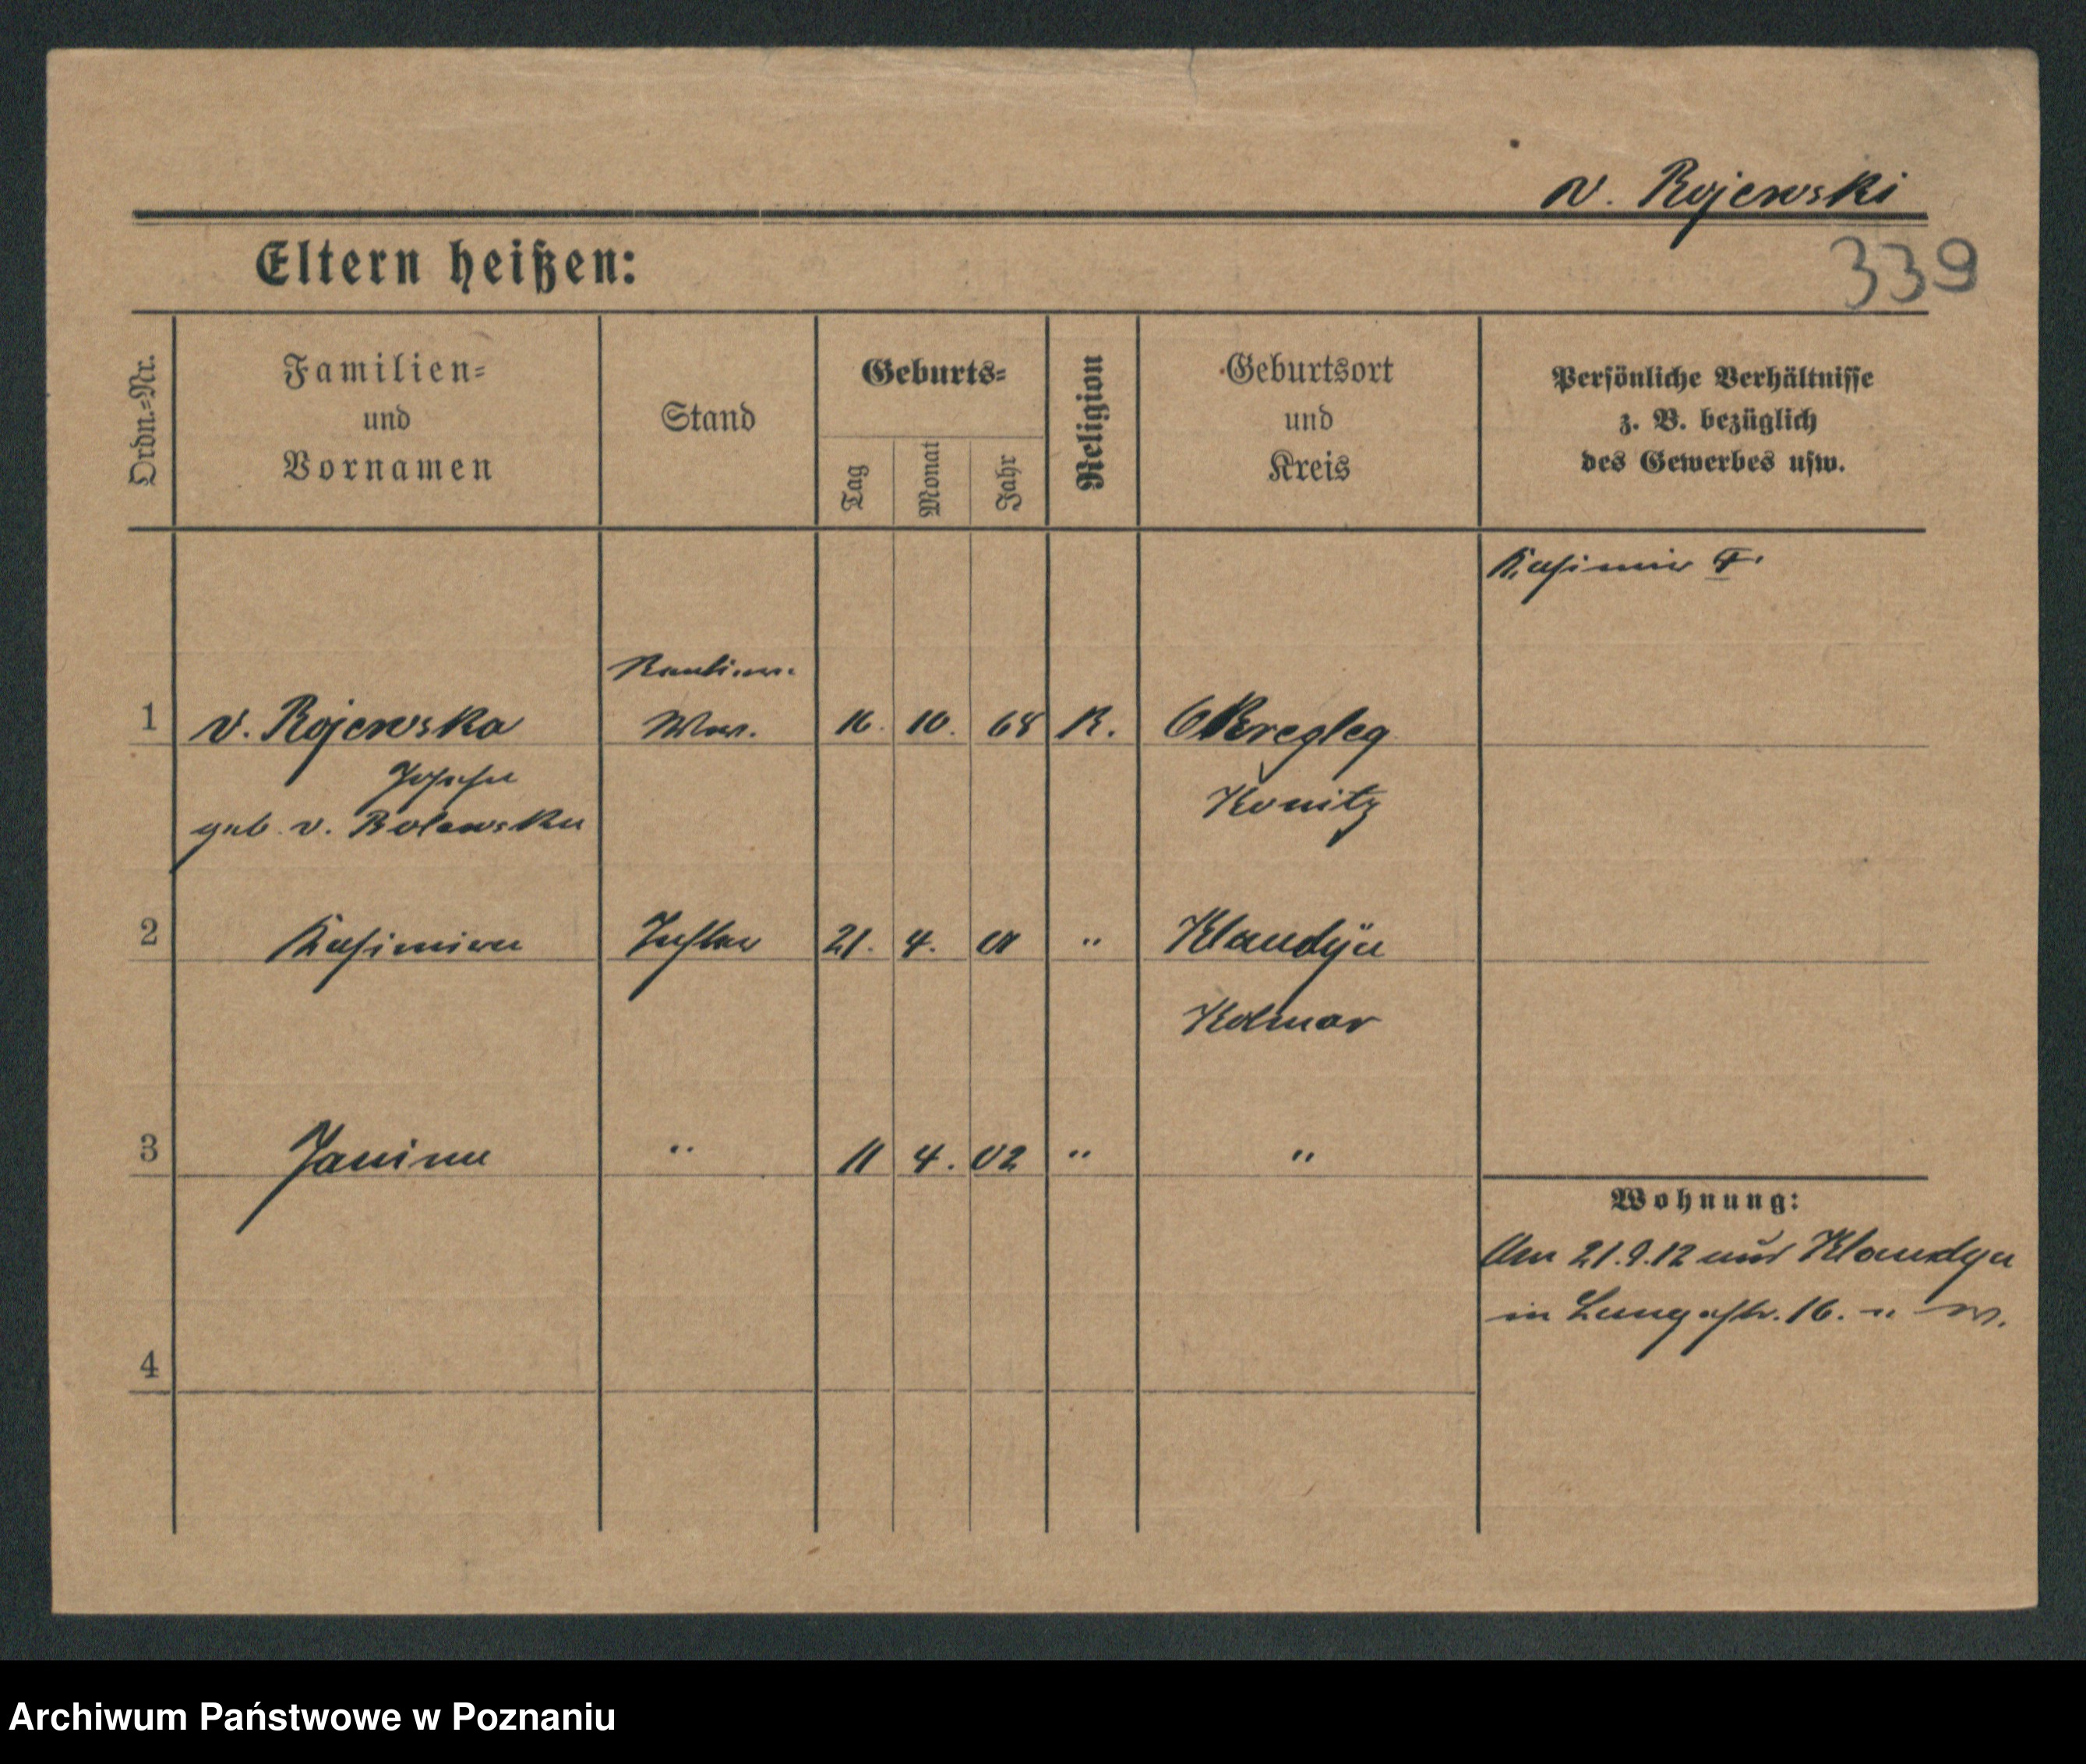 v. Rojewski
Eltern heißen:
339
Ordn.=Nr.
Familien=
und
Vornamen
Stand
Geburts=
Tag
Monat
Jahr
Religion
Geburtsort
und
Kreis
Persönliche Verhältnisse
z. B. bezüglich
des Gewerbes usw.
Kasimir †.
Rentiere.
1 v. Rojewska Ww. 16. 10. 68 K.
Josefa Konitz
geb. v. Bolewska
2 Kasimira Tochter 21. 4. 01 " Klaudya
Kolmar
3 Janina " 11 4. 02 " "
Wohnung:
Am 21.9.12 aus Klaudya
in Langestr. 16.
4
Archiwum Państwowe w Poznaniu